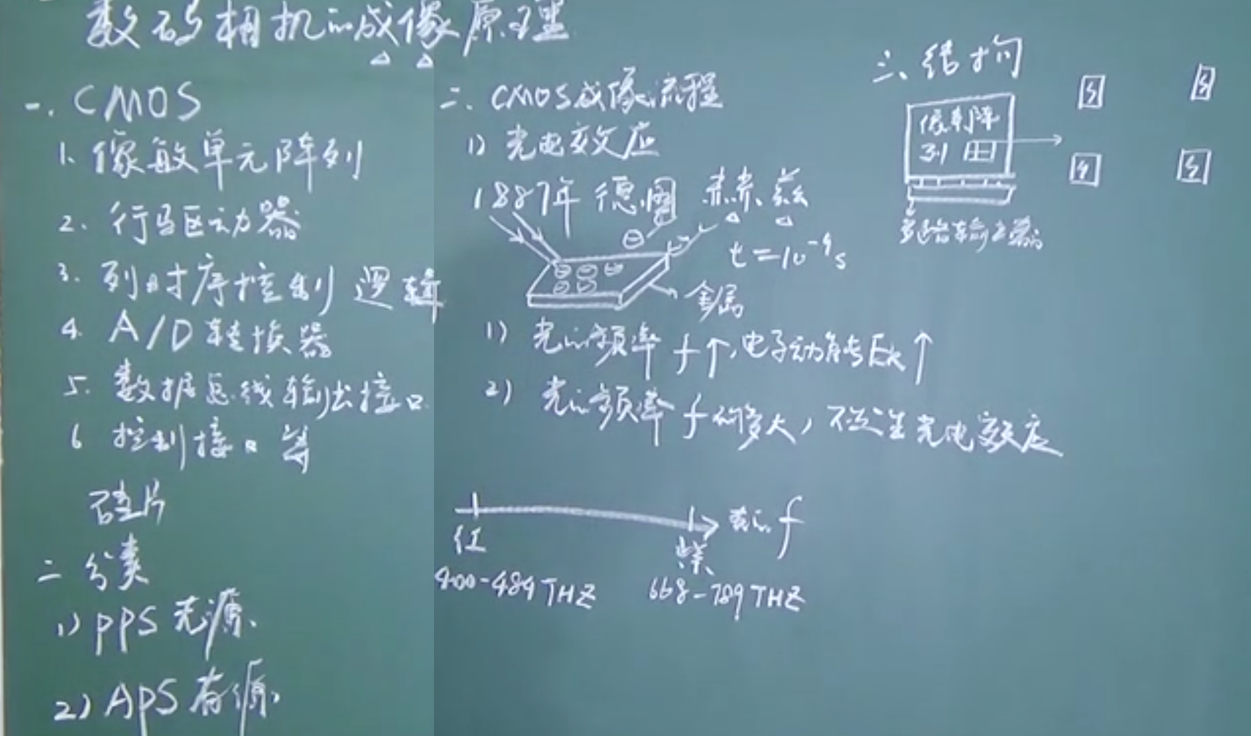 数码相机的成像原理
一. CMOS
1. 像敏单元阵列
2. 行驱动器
3. 列时序控制逻辑
4. A/D转换器
5. 数据总线输出接口
6 控制接口等
硅片
二 分类
1) PPS 无源.
2) APS 有源.
二、CMOS成像流程
1) 光电效应
1887年 德国 赫兹
t=10⁻⁹s
金属
1) 光的频率 f↑, 电子动能Ek↑
2) 光的频率 f 够大,
光电效应
红
紫
光的 f
400-484THZ
668-789THZ
三、结构
像敏阵
列